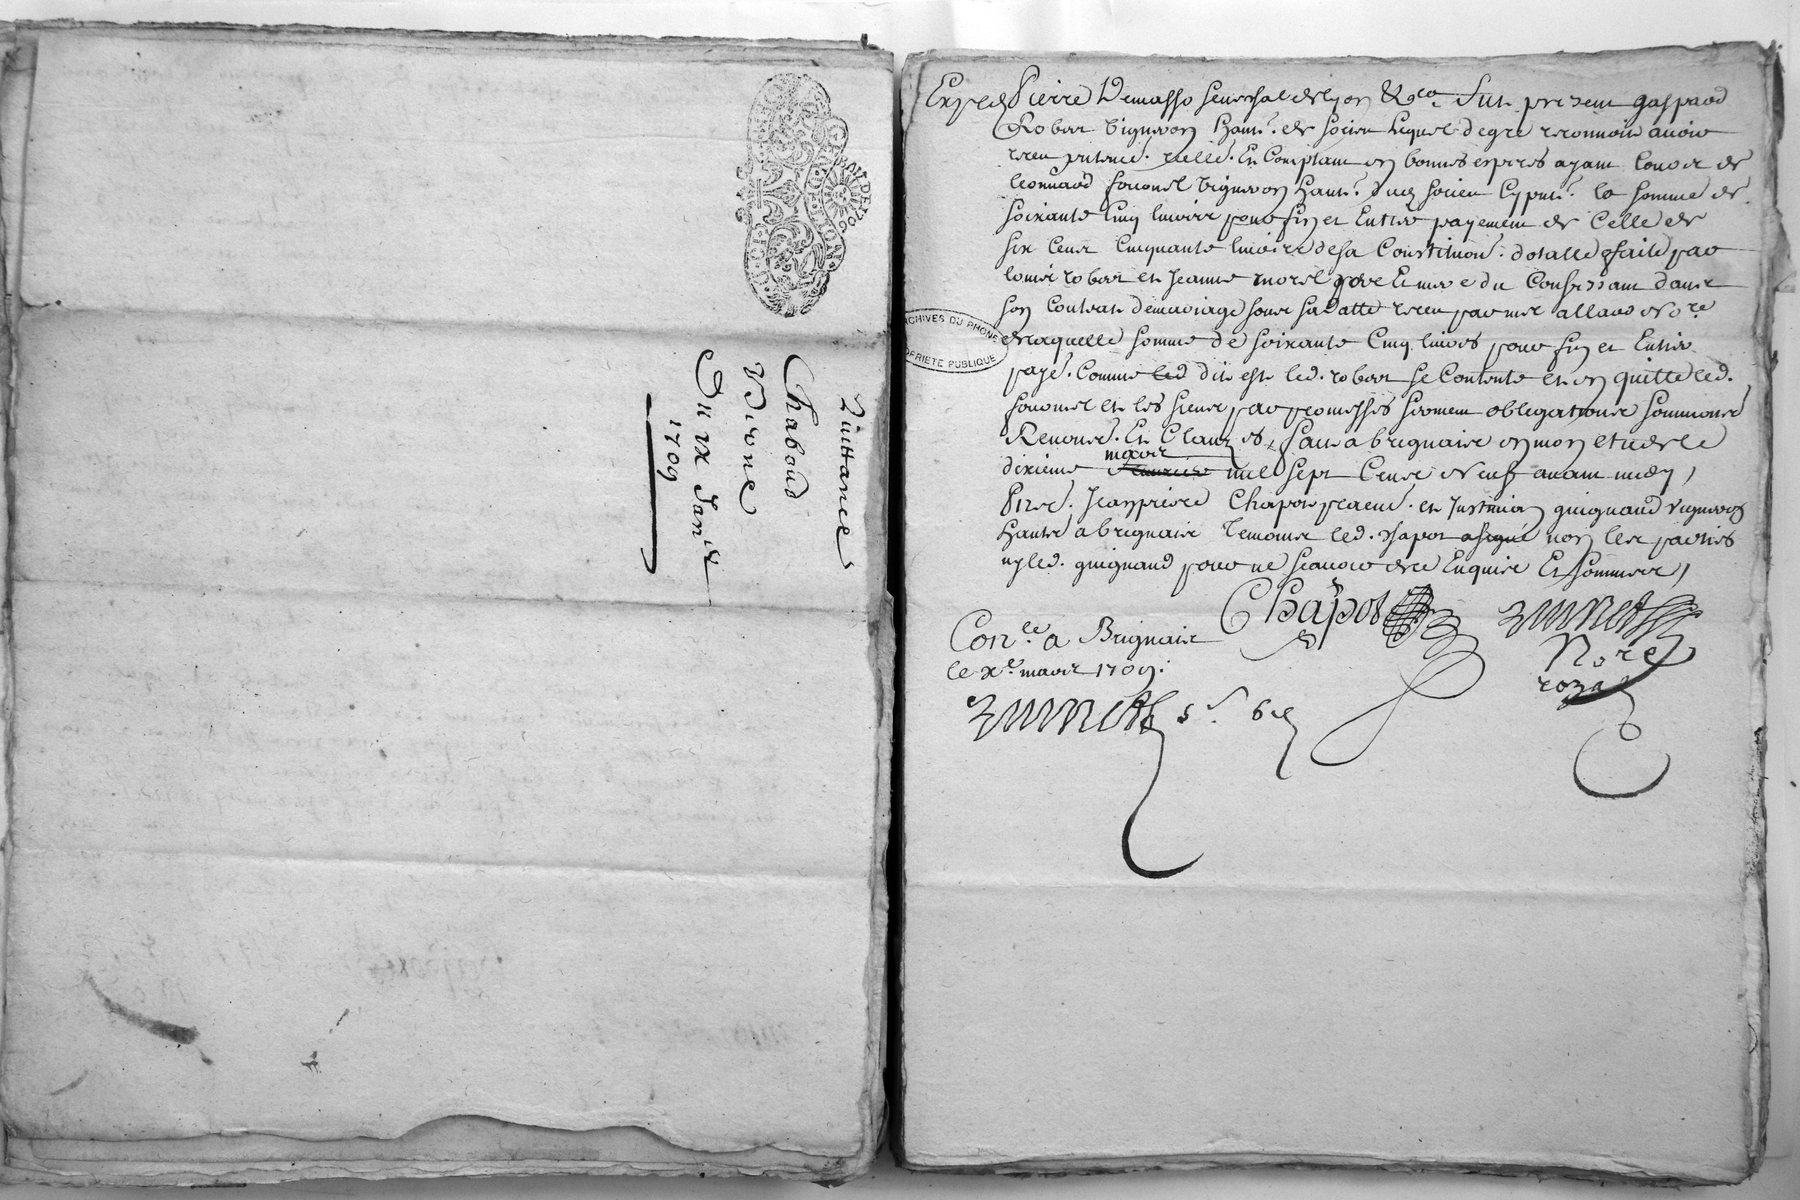 Quittance
Chaboud
Virone
Du IX Janer
1709
GN. DE LYON
ARCHIVES DU RHONE
PROPRIETE PUBLIQUE
Exped Pierre Demasso senechal de lyon &ca Fut present gaspard
Robert vigneron hant. de lequel de gre reconnoit avoir
receu reelle. En comptant en bonnes especes ayant cours de
leonnard fouonel vigneron hant. dud. la somme de
soixante cinq livres pour fin et Entier payement de Celle de
six Cent cinquante livres de sa Constitution dotalle faite par
louis robert et Jeanne morel pere Et mere du Confessant dans
son Contrat de mariage sous sa datte receu par me allard No.re
de laquelle somme de soixante Cinq livres pour fin et Entier
paye. Comme led dit est led. robert se Contente et en quitte led.
fouonel et les siens par promesses serment obligations soumions
Renonc. Et Clauses, fait a brignais en mon etude le
mars
dixieme mil sept Cens Neuf avant midy,
Jean pierre Chapot et guignand vigneron
hants a brignais temoins led. Chapot a signé non les parties
ny led. guignand pour ne scavoir de ce Enquis Et sommes,
Chapot
No.re
rozal
Con.le a Brignais
le x.e mars 1709.